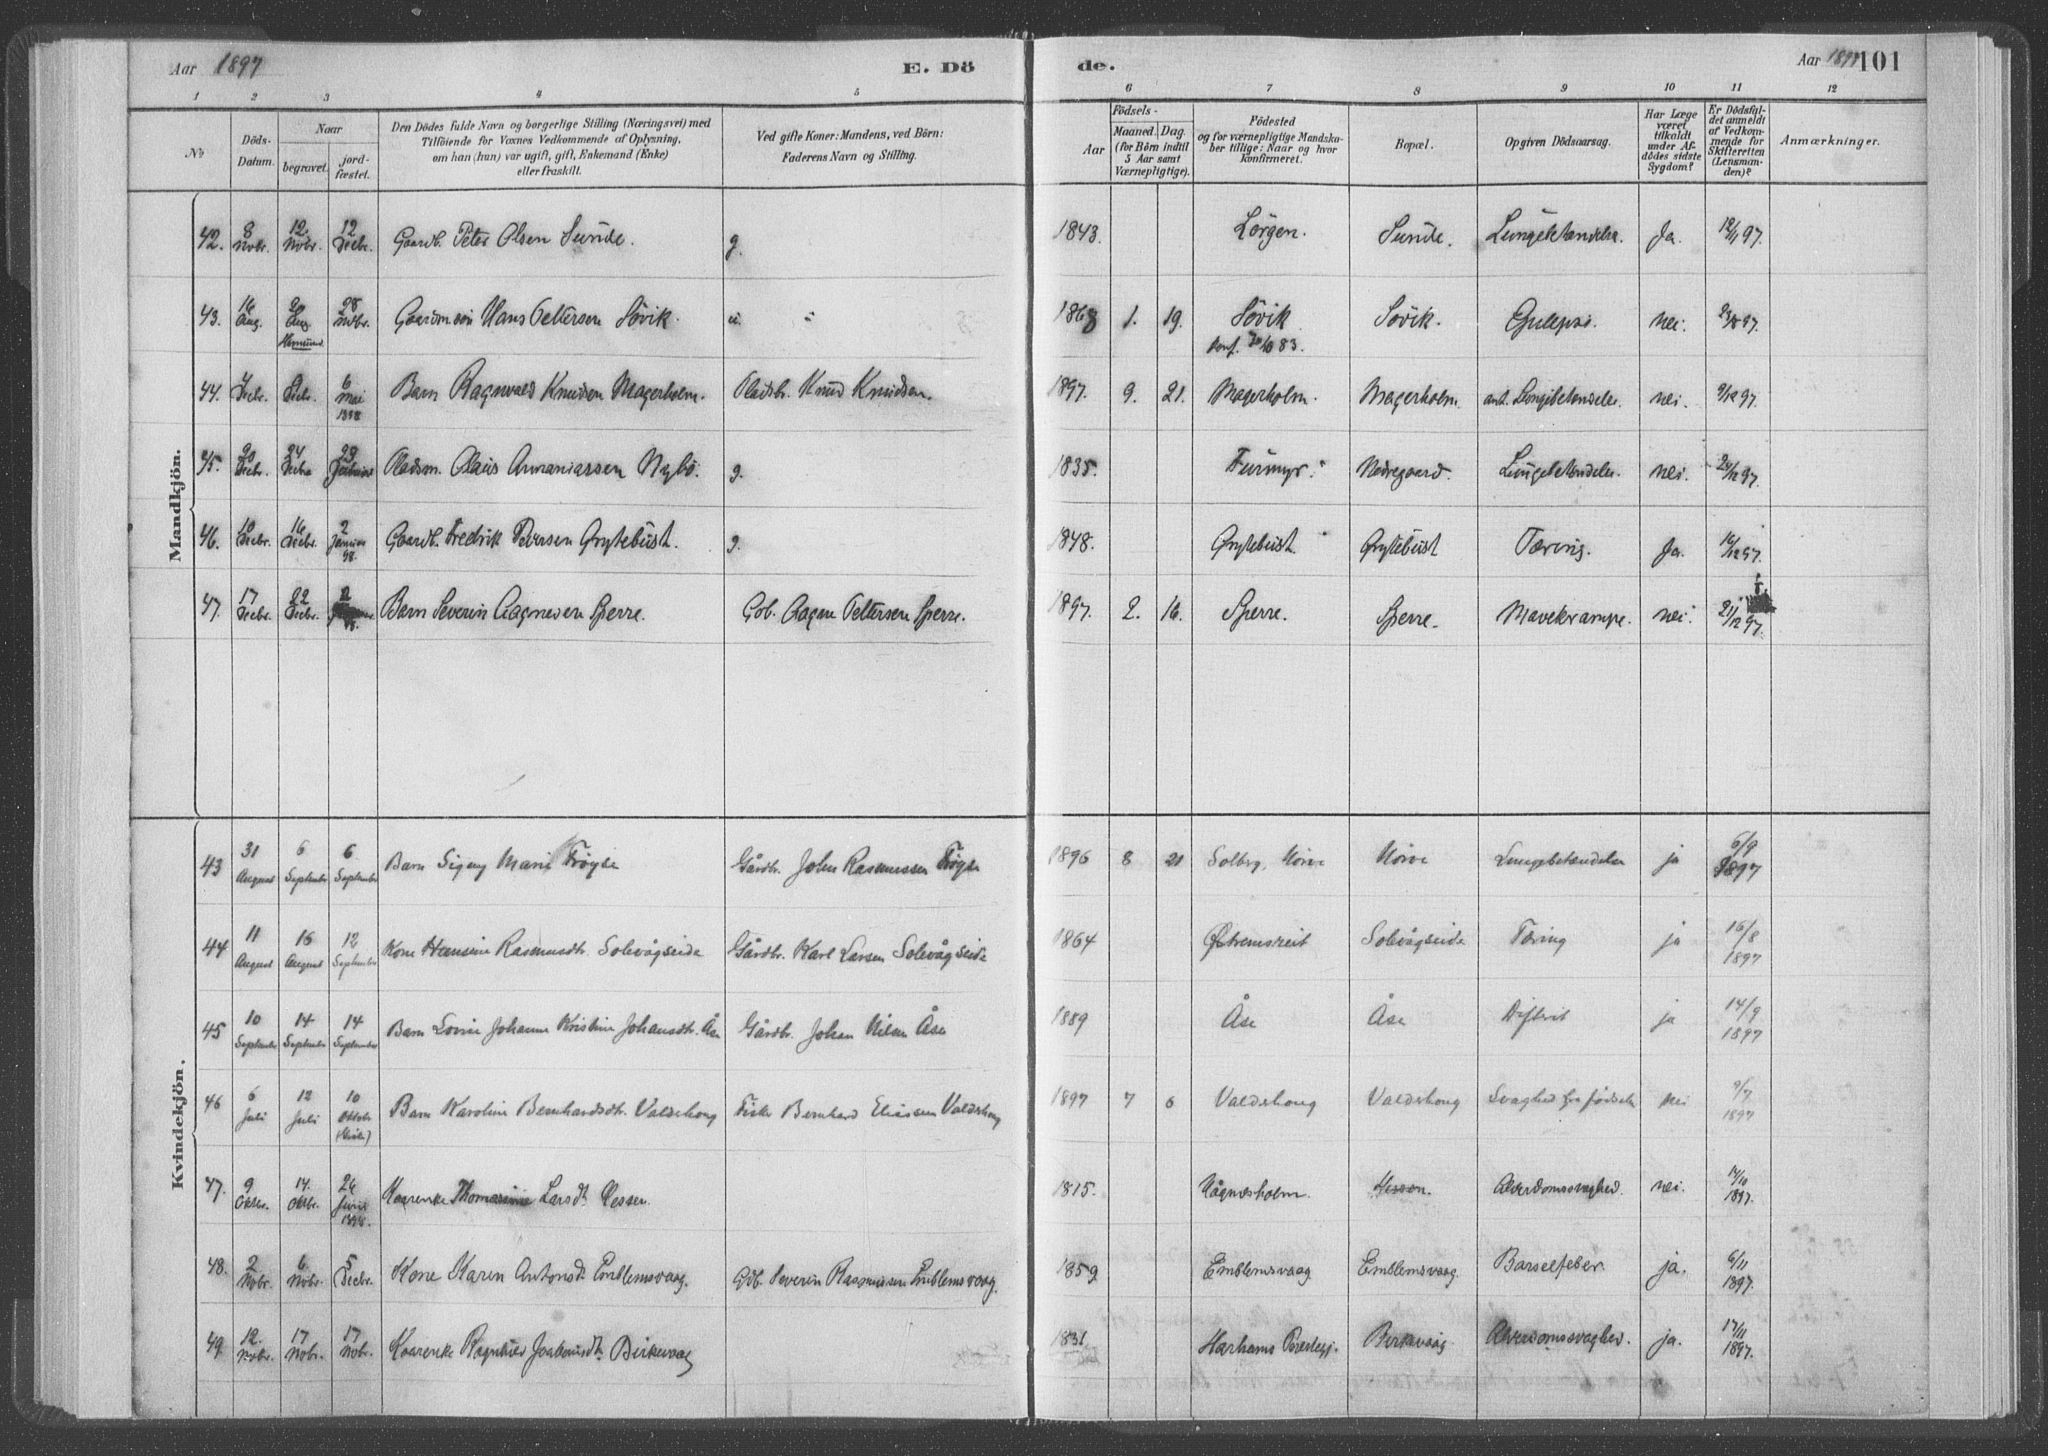 Aar 1897 E. Dö
de. Aar 1897 101
1 2 3 4 5 6 7 8 9 10 11 12
No
Döds-Datum.
Naar
begravet.
jord-fæstet.
Den Dödes fulde Navn og borgerlige Stilling (Næringsvei) med
Tilföiende for Voxnes Vedkommende af Oplysning,
om han (hun) var ugift, gift, Enkemand (Enke)
eller fraskilt.
Ved gifte Koner: Mandens, ved Börn:
Faderens Navn og Stilling.
Aar
Födsels-
Maaned. Dag.
(for Börn indtil
5 Aar samt
Værnepligtige).
Födested
og for værnepligtige Mandska-
ber tillige: Naar og hvor
konfirmeret.
Bopæl.
Opgiven Dödsaarsag.
Har Læge
været
tilkaldt
under Af-
dödes sidste
Sygdom?
Er Dödsfal-
det anmeldt
af Vedkom-
mende for
Skifteretten
(Lensman-
den)?
Anmærkninger.
Mandkjön.
42. 8 Novbr. 12. Novbr. 12 Decbr. Gaardb. Peter Olsen Sunde. g. 1843. Lörgen. Sunde. Lungebetændelse. Ja. 12/11 97.
43. 16 Aug. Aug. 28 Novbr. Gaardmsön Hans Pettersen Sövik. u. 1868 1. 19. Sövik Sövik. Gulepsi. nei. 97.
konf. 83.
44. Decbr. Decbr. 6 mai 1898 Barn Ragnvald Knudsen Magerholm. Pladsbr. Knud Knudsen. 1897. 9. 21. Magerholm. Magerholm. ant. Lungebetændelse. nei. 9/12 97.
45. 20 Decbr. 24 Decbr. 23 Pladsm. Olaus Annaniassen Nybö. g. 1835. Furmyr. Nedregaard. Lungebetændelse. nei. 24/12 97.
46. 10 Decbr. 16 Decbr. 2 Januar 98. Gaardb. Fredrik Iversen Grytebust. g. 1848. Grytebust. Grytebust Tæring. Ja. 16/12 97.
47. 17 Decbr. 22 Decbr. 2 Barn Severin Aagnesen Sperre. Gb. Aagne Pettersen Sperre. 1897. 2. 16. Sperre. Sperre. Mavekrampe. nei. 21/12 97.
Kvindekjön.
43 31 August 6 September 6 September Barn Signy Marie Tröyte Gårdbr. John Rasmussen Tröyte 1896 8 21 Solberg, Nörve Nörve Lungebetændelse ja 6/9 1897
44 11 August 16 August 12 September Kone Hansine Rasmusdtr. Solevågseide Gårdbr. Karl Larsen Solevågseide 1864 Østremsreit Solevågseide Tæring ja 16/8 1897
45 10 September 14 September 14 September Barn Lovise Johanne Kristine Johansdtr. Åse Gårdbr. Johan Nilsen Åse 1889 Åse Åse Difterit ja 14/9 1897
46 6 Juli 12 Juli 10 Oktober Barn Karoline Bernhardsdtr. Valdshoug Fisker Bernhard Eliassen Valdshoug 1897 7 6 Valdshoug Valdshoug Svaghed fra födsel nei 9/7 1897
47. 9 Oktbr. 14. Oktbr. 26 Juni 1898. Kaarenke Thomasine Larsdt. Hessen. 1815. Hågnesholm. Hessen. Alderdomssvaghed. nei. 14/10 1897.
48. 2 Novbr. 6 Novbr. 5 Decbr. Kone Karen Antonsdt. Emblemsvaag. Gdb. Severin Rasmussen Emblemsvaag. 1859 Emblemsvaag Emblemsvaag. Barselfeber ja. 6/11 1897.
49. 12. Novbr. 17 Novbr. 17 Novbr. Kaarenke Ragnhild Birkevaag 1831. Harhams Præstegj. Birkevaag Alderdomssvaghed. ja. 17/11 1897.